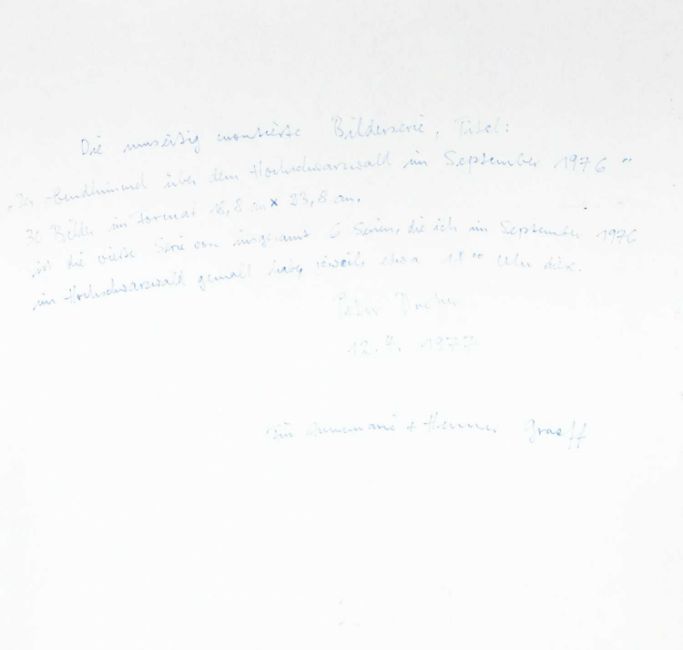 Die umseitig montierte Bilderserie, Titel:
"Der Abendhimmel über dem Hochschwarzwald im September 1976"
30 Bilder im Format 16,8 cm x 23,8 cm,
ist die vierte Serie von insgesamt 6 Serien, die ich im September 1976
im Hochschwarzwald gemalt habe, jeweils etwa 18°° Uhr
Peter
12. 1977
Für Annemarie + Graeff